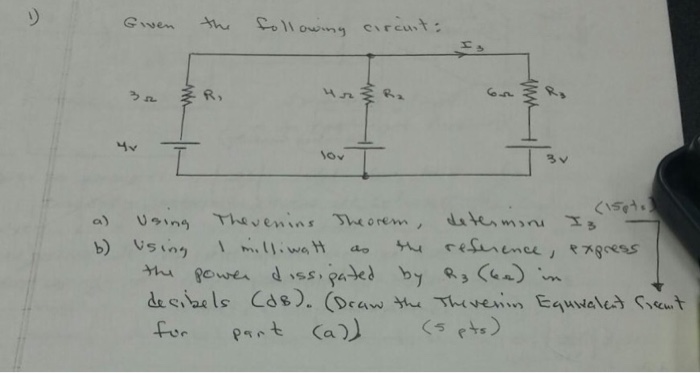 1) Given the following circuit:
I3
3Ω R1 4Ω R2 6Ω R3
4v 10v 3v
a) Using Thevenins Theorem, determine I3 (15pts)
b) Using 1 milliwatt as the reference, express
the power dissipated by R3 (6Ω) in
decibels (dB). (Draw the Thevenin Equivalent Circuit
for part (a)) (5 pts)